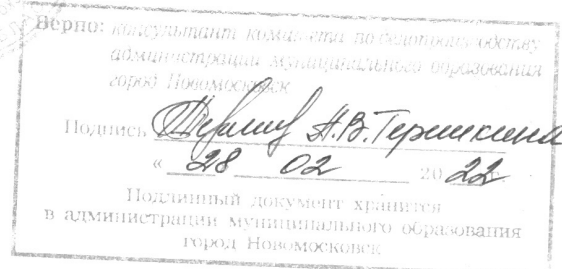 Верно: консультант комитета по делопроизводству
администрации муниципального образования
город Новомосковск
Подпись Н.В. Терешкина
« 28 02 20 22 г.
Подлинный документ хранится
в администрации муниципального образования
город Новомосковск